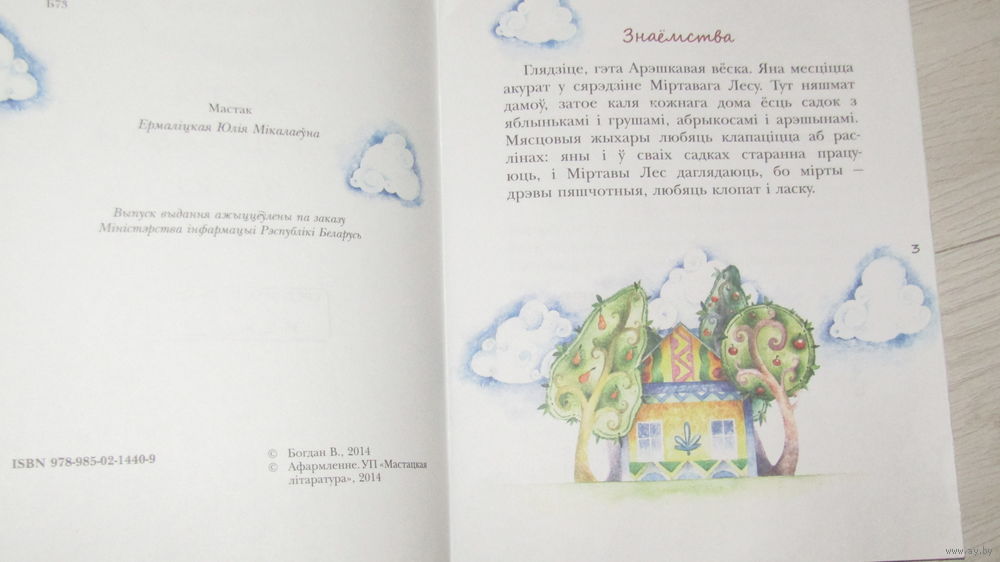 Б73
Мастак
Ермаліцкая Юлія Мікалаеўна
Выпуск выдання ажыццёўлены па заказу
Міністэрства інфармацыі Рэспублікі Беларусь
ISBN 978-985-02-1440-9
© Богдан В., 2014
© Афармленне. УП «Мастацкая
літаратура», 2014
Знаёмства
Глядзіце, гэта Арэшкавая вёска. Яна месціцца
акурат у сярэдзіне Міртавага Лесу. Тут няшмат
дамоў, затое каля кожнага дома ёсць садок з
яблынькамі і грушамі, абрыкосамі і арэшынамі.
Мясцовыя жыхары любяць клапаціцца аб рас-
лінах: яны і ў сваіх садках старанна працу-
юць, і Міртавы Лес даглядаюць, бо мірты –
дрэвы пяшчотныя, любяць клопат і ласку.
3
www.ay.by